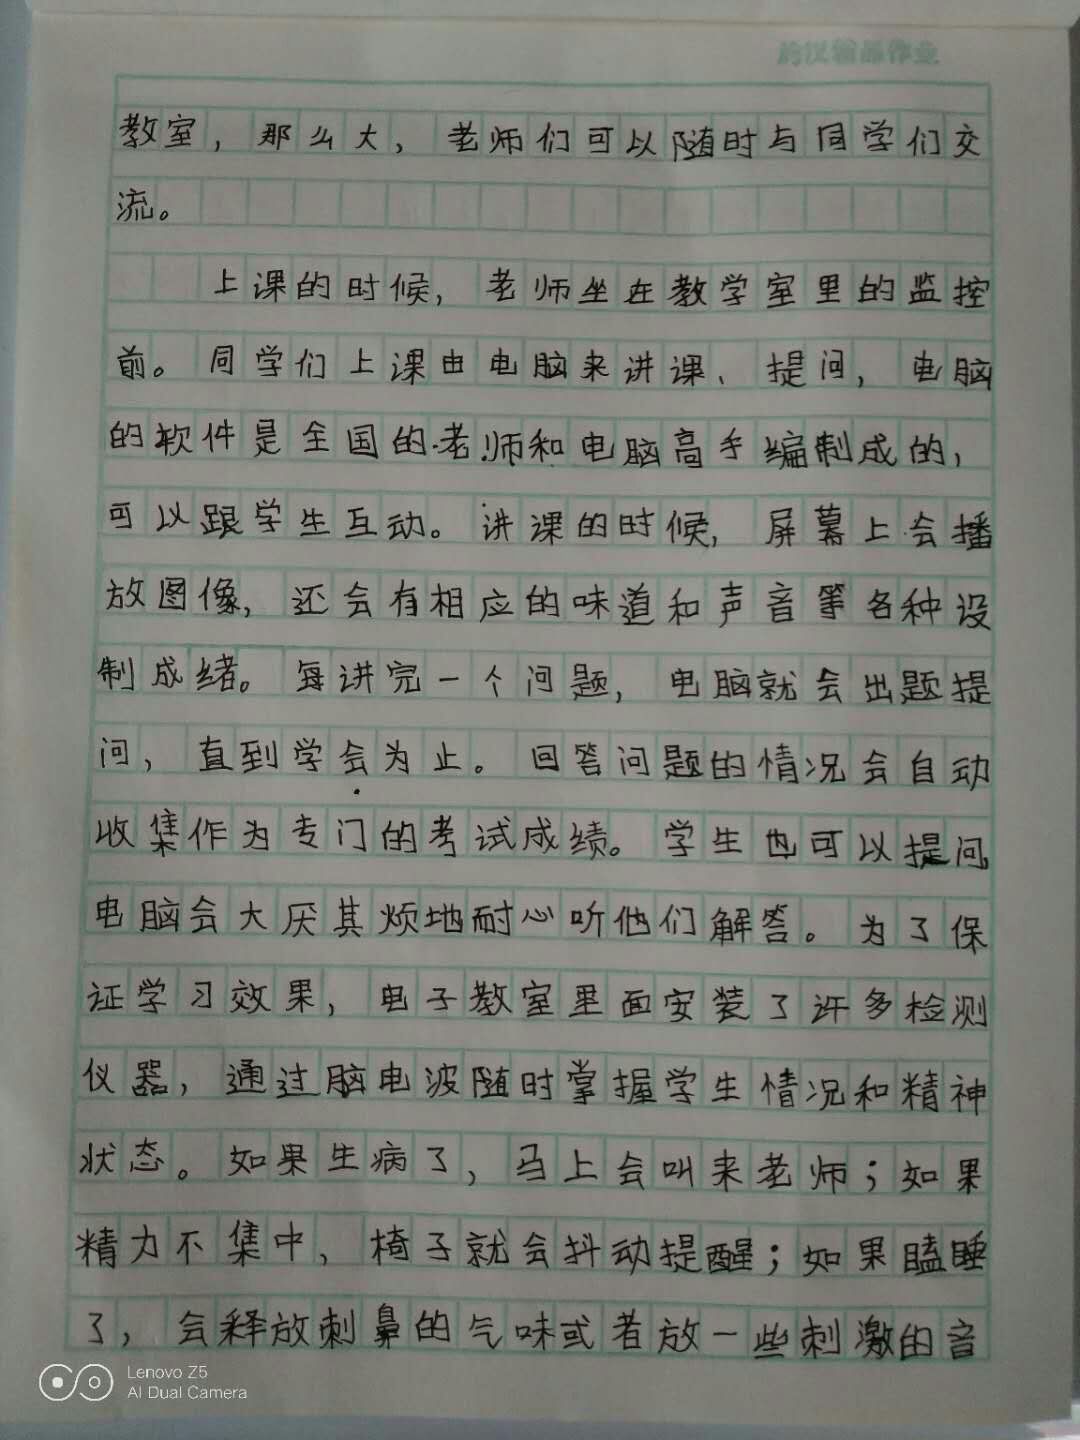 韵汉精品作业
教室，那么大，老师们可以随时与同学们交
流。
上课的时候，老师坐在教学室里的监控
前。同学们上课由电脑来讲课、提问，电脑
的软件是全国的老师和电脑高手编制成的，
可以跟学生互动。讲课的时候，屏幕上会播
放图像，还会有相应的味道和声音等各种设
制成绪。每讲完一个问题，电脑就会出题提
问，直到学会为止。回答问题的情况会自动
收集作为专门的考试成绩。学生也可以提问
电脑会大厌其烦地耐心听他们解答。为了保
证学习效果，电子教室里面安装了许多检测
仪器，通过脑电波随时掌握学生情况和精神
状态。如果生病了，马上会叫来老师；如果
精力不集中，椅子就会抖动提醒；如果瞌睡
了，会释放刺鼻的气味或者放一些刺激的音
Lenovo Z5
AI Dual Camera